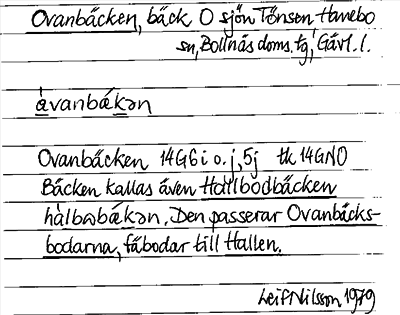 Ovanbäcken, bäck O sjön Tönsen Hanebo
sn, Bollnäs doms. tg, Gävl. l.
åvanbäkən
Ovanbäcken 14G6i o. j, 5j tk 14GNO
Bäcken kallas även Hallbodbäcken
hàlbωbákən. Den passerar Ovanbäcks-
bodarna, fäbodar till Hallen.
Leif Nilsson 1979